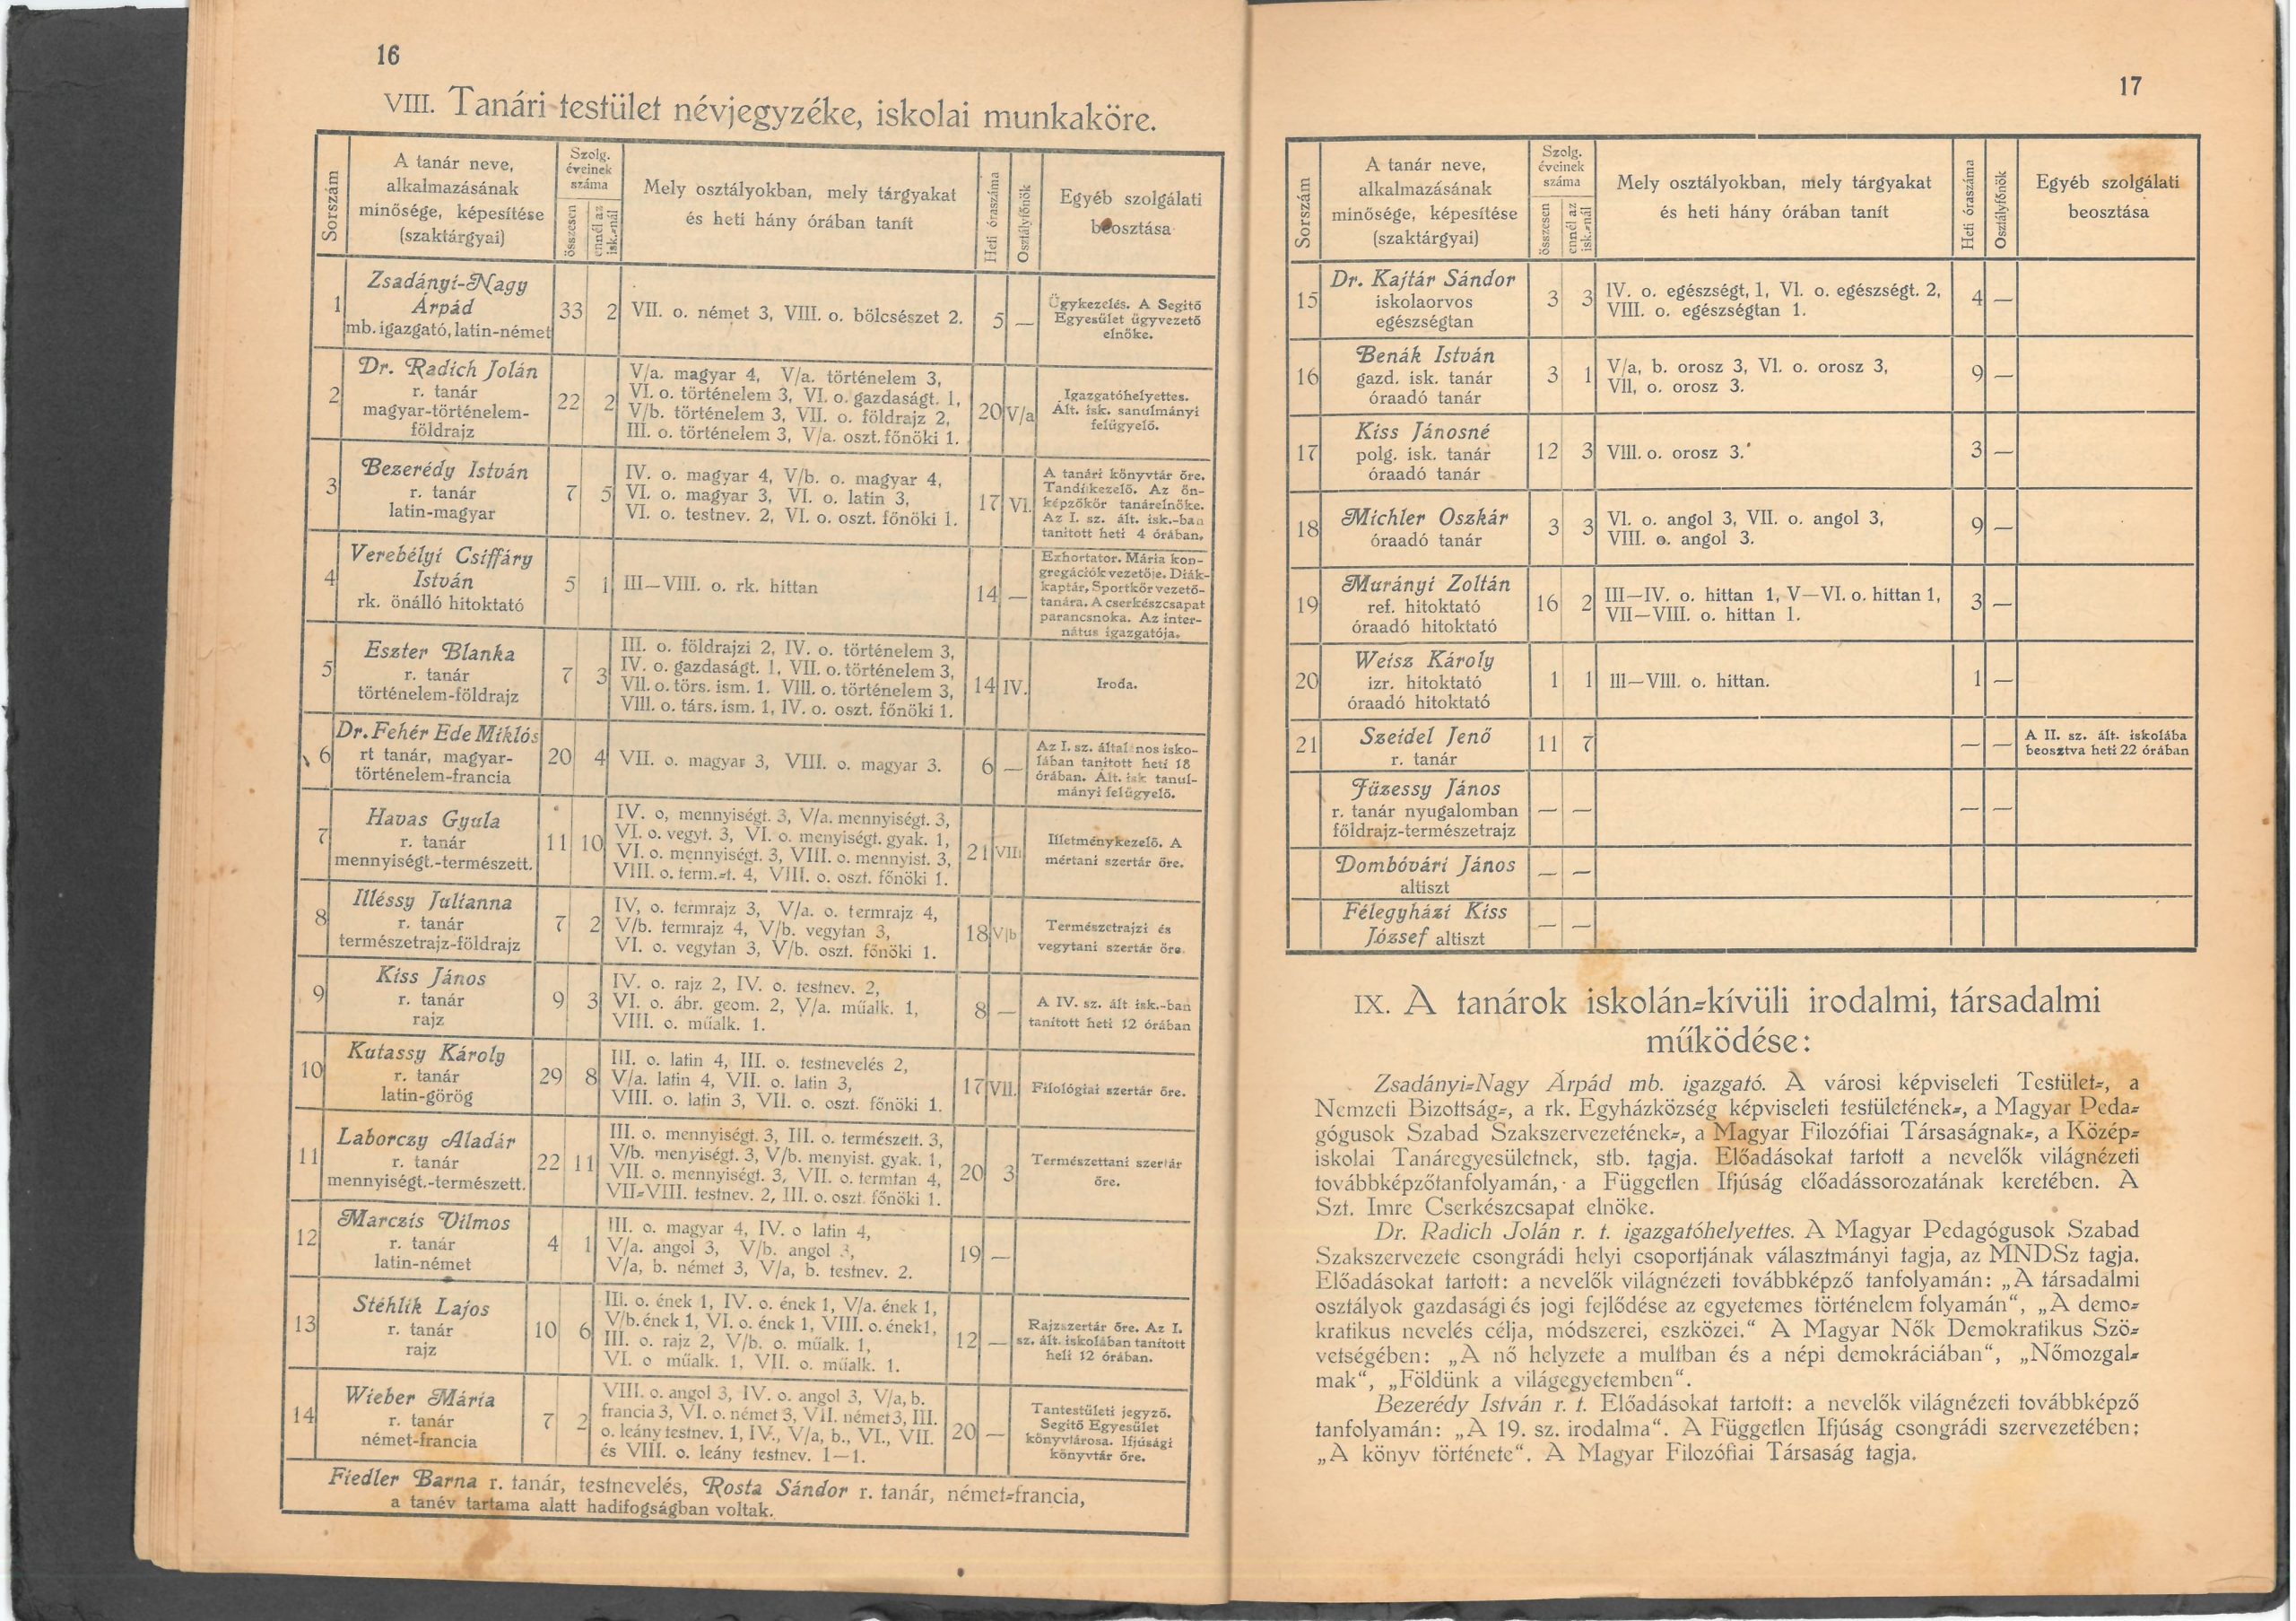 16
VIII. Tanári testület névjegyzéke, iskolai munkaköre.
Sorszám
A tanár neve,
alkalmazásának
minősége, képesítése
(szaktárgyai)
Szolg.
éveinek
száma
összesen
ennél az
isk.-nál
Mely osztályokban, mely tárgyakat
és heti hány órában tanít
Heti óraszáma
Osztályfőnök
Egyéb szolgálati
beosztása
1
Zsadányi-Nagy
Árpád
mb. igazgató, latin-német
33 2
VII. o. német 3, VIII. o. bölcsészet 2.
5 —
Ügykezelés. A Segítő
Egyesület ügyvezető
elnöke.
2
Dr. Radich Jolán
r. tanár
magyar-történelem-
földrajz
22 2
V/a. magyar 4, V/a. történelem 3,
VI. o. történelem 3, VI. o. gazdaságt. 1,
V/b. történelem 3, VII. o. földrajz 2,
III. o. történelem 3, V/a. oszt. főnöki 1.
20 V/a
Igazgatóhelyettes.
Ált. isk. sanulmányi
felügyelő.
3
Bezerédy István
r. tanár
latin-magyar
7 5
IV. o. magyar 4, V/b. o. magyar 4,
VI. o. magyar 3, VI. o. latin 3,
VI. o. testnev. 2, VI. o. oszt. főnöki 1.
17 VI.
A tanári könyvtár őre.
Tandíjkezelő. Az ön-
képzőkör tanárelnöke.
Az I. sz. ált. isk.-ban
tanított heti 4 órában.
4
Verebélyi Csiffáry
István
rk. önálló hitoktató
5 1
III—VIII. o. rk. hittan
14 —
Exhortator. Mária kon-
gregációk vezetője. Diák-
kaptár, Sportkör vezető-
tanára. A cserkészcsapat
parancsnoka. Az inter-
nátus igazgatója.
5
Eszter Blanka
r. tanár
történelem-földrajz
7 3
III. o. földrajzi 2, IV. o. történelem 3,
IV. o. gazdaságt. 1, VII. o. történelem 3,
VII. o. törs. ism. 1. VIII. o. történelem 3,
VIII. o. társ. ism. 1, IV. o. oszt. főnöki 1.
14 IV.
Iroda.
6
Dr. Fehér Ede Miklós
rt tanár, magyar-
történelem-francia
20 4
VII. o. magyar 3, VIII. o. magyar 3.
6 —
Az I. sz. által nos isko-
lában tanított heti 18
órában. Ált. isk tanul-
mányi felügyelő.
7
Havas Gyula
r. tanár
mennyiségt.-természett.
11 10
IV. o, mennyiségt. 3, V/a. mennyiségt. 3,
VI. o. vegyt. 3, VI. o. menyiségt. gyak. 1,
VI. o. mennyiségt. 3, VIII. o. mennyist. 3,
VIII. o. term.-t. 4, VIII. o. oszt. főnöki 1.
21 VIII
Illetménykezelő. A
mértani szertár őre.
8
Illéssy Julianna
r. tanár
természetrajz-földrajz
7 2
IV, o. termrajz 3, V/a. o. termrajz 4,
V/b. termrajz 4, V/b. vegytan 3,
VI. o. vegytan 3, V/b. oszt. főnöki 1.
18 V/b
Természetrajzi és
vegytani szertár őre.
9
Kiss János
r. tanár
rajz
9 3
IV. o. rajz 2, IV. o. testnev. 2,
VI. o. ábr. geom. 2, V/a. műalk. 1,
VIII. o. műalk. 1.
8 —
A IV. sz. ált isk.-ban
tanított heti 12 órában
10
Kutassy Károly
r. tanár
latin-görög
29 8
III. o. latin 4, III. o. testnevelés 2,
V/a. latin 4, VII. o. latin 3,
VIII. o. latin 3, VII. o. oszt. főnöki 1.
17 VII.
Filológiai szertár őre.
11
Laborczy Aladár
r. tanár
mennyiségt.-természett.
22 11
III. o. mennyiségt. 3, III. o. természett. 3,
V/b. menyiségt. 3, V/b. menyist. gyak. 1,
VII. o. mennyiségt. 3, VII. o. termtan 4,
VII-VIII. testnev. 2, III. o. oszt. főnöki 1.
20 3
Természettani szertár
őre.
12
Marczis Vilmos
r. tanár
latin-német
4 1
III. o. magyar 4, IV. o latin 4,
V/a. angol 3, V/b. angol 3,
V/a, b. német 3, V/a, b. testnev. 2.
19 —
13
Stehlik Lajos
r. tanár
rajz
10 6
III. o. ének 1, IV. o. ének 1, V/a. ének 1,
V/b. ének 1, VI. o. ének 1, VIII. o. ének1,
III. o. rajz 2, V/b. o. műalk. 1,
VI. o műalk. 1, VII. o. műalk. 1.
12 —
Rajzszertár őre. Az I.
sz. ált. iskolában tanított
heti 12 órában.
14
Wieber Mária
r. tanár
német-francia
7 2
VIII. o. angol 3, IV. o. angol 3, V/a, b.
francia 3, VI. o. német 3, VII. német 3, III.
o. leány testnev. 1, IV., V/a, b., VI., VII.
és VIII. o. leány testnev. 1—1.
20 —
Tantestületi jegyző.
Segítő Egyesület
könyvtárosa. Ifjúsági
könyvtár őre.
Fiedler Barna r. tanár, testnevelés, Rosta Sándor r. tanár, német-francia,
a tanév tartama alatt hadifogságban voltak.
17
Sorszám
A tanár neve,
alkalmazásának
minősége, képesítése
(szaktárgyai)
Szolg.
éveinek
száma
összesen
ennél az
isk.-nál
Mely osztályokban, mely tárgyakat
és heti hány órában tanít
Heti óraszáma
Osztályfőnök
Egyéb szolgálati
beosztása
15
Dr. Kajtár Sándor
iskolaorvos
egészségtan
3 3
IV. o. egészségt, 1, VI. o. egészségt. 2,
VIII. o. egészségtan 1.
4 —
16
Benák István
gazd. isk. tanár
óraadó tanár
3 1
V/a, b. orosz 3, VI. o. orosz 3,
VII, o. orosz 3.
9 —
17
Kiss Jánosné
polg. isk. tanár
óraadó tanár
12 3
VIII. o. orosz 3.
3 —
18
Michler Oszkár
óraadó tanár
3 3
VI. o. angol 3, VII. o. angol 3,
VIII. o. angol 3.
9 —
19
Murányi Zoltán
ref. hitoktató
óraadó hitoktató
16 2
III—IV. o. hittan 1, V—VI. o. hittan 1,
VII—VIII. o. hittan 1.
3 —
20
Weisz Károly
izr. hitoktató
óraadó hitoktató
1 1
III—VIII. o. hittan.
1 —
21
Szeidel Jenő
r. tanár
11 7
— —
A II. sz. ált. iskolába
beosztva heti 22 órában
Füzessy János
r. tanár nyugalomban
földrajz-természetrajz
— —
— —
Dombóvári János
altiszt
— —
Félegyházi Kiss
József altiszt
— —
IX. A tanárok iskolán-kívüli irodalmi, társadalmi
működése:
Zsadányi-Nagy Árpád mb. igazgató. A városi képviseleti Testület-, a
Nemzeti Bizottság-, a rk. Egyházközség képviseleti testületének-, a Magyar Peda-
gógusok Szabad Szakszervezetének-, a Magyar Filozófiai Társaságnak-, a Közép-
iskolai Tanáregyesületnek, stb. tagja. Előadásokat tartott a nevelők világnézeti
továbbképzőtanfolyamán, a Független Ifjúság előadássorozatának keretében. A
Szt. Imre Cserkészcsapat elnöke.
Dr. Radich Jolán r. t. igazgatóhelyettes. A Magyar Pedagógusok Szabad
Szakszervezete csongrádi helyi csoportjának választmányi tagja, az MNDSz tagja.
Előadásokat tartott: a nevelők világnézeti továbbképző tanfolyamán: „A társadalmi
osztályok gazdasági és jogi fejlődése az egyetemes történelem folyamán“, „A demo-
kratikus nevelés célja, módszerei, eszközei.“ A Magyar Nők Demokratikus Szö-
vetségében: „A nő helyzete a multban és a népi demokráciában“, „Nőmozgal-
mak“, „Földünk a világegyetemben“.
Bezerédy István r. t. Előadásokat tartott: a nevelők világnézeti továbbképző
tanfolyamán: „A 19. sz. irodalma“. A Független Ifjúság csongrádi szervezetében;
„A könyv története“. A Magyar Filozófiai Társaság tagja.